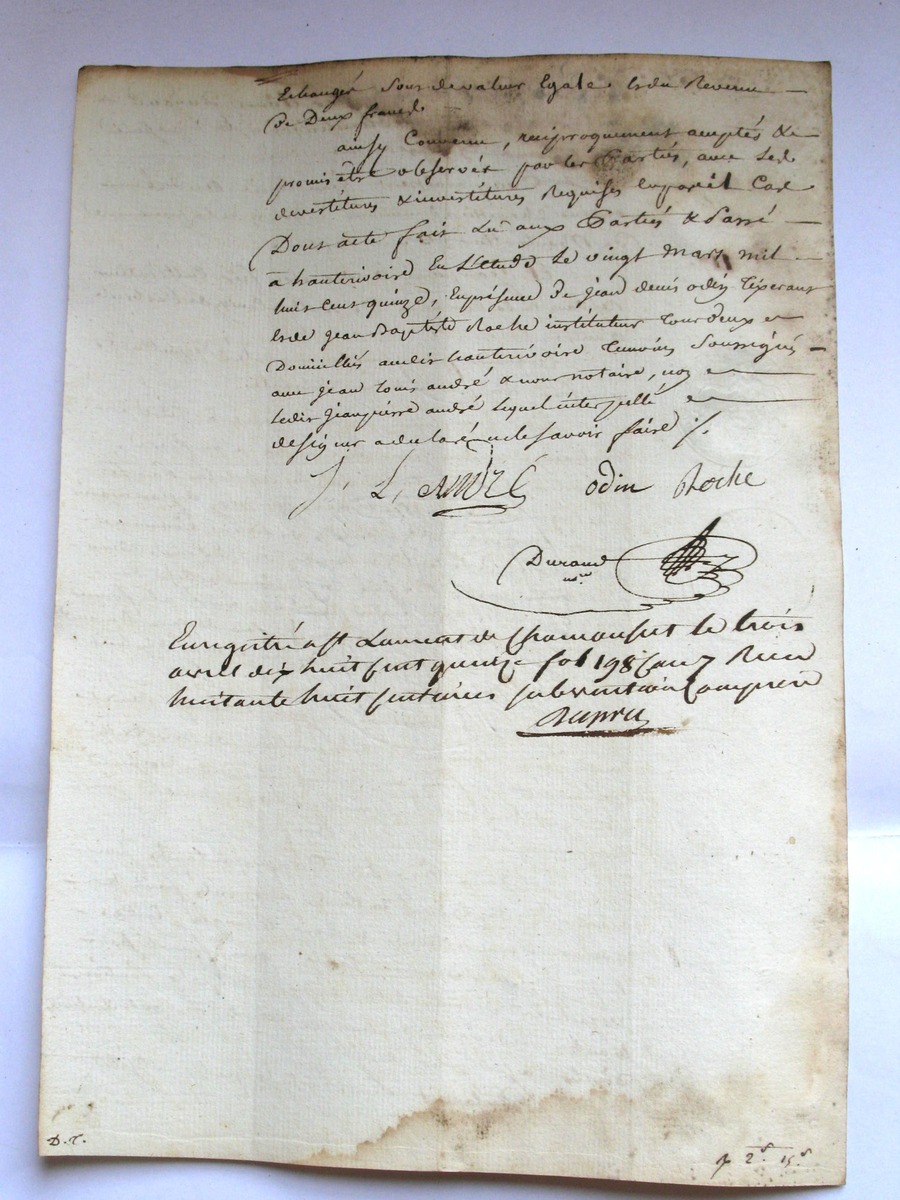 Echangés sont de valeur Egale & du Revenu
de Deux francs
ainsy Convenu, réciproquement acceptés &
promis être observés par les Parties, avec les
devestitures & investitures Requises en pareil Cas
Dont acte fait Lu aux Parties & Passé
à hauterivoire En L'etude Le vingt Mars mil
huit Cent quinze, En présence de jean denis odin
& de jean Baptiste Roche instituteur Tous deux
Domiciliés audit hauterivoire Temoins Soussignés
avec jean Louis andré & nous notaire, non
Ledit jean pierre andré Lequel interpellé
de signer a declaré ne le savoir faire ./.
J. L. André odin Roche
Durand
nre
Enregistré a st Laurent de Chamousset le trois
avril dix huit cent quinze fol 198 Case 7 Reçu
huitante huit centimes subvention comprise
Dupru
D.T.
2 15